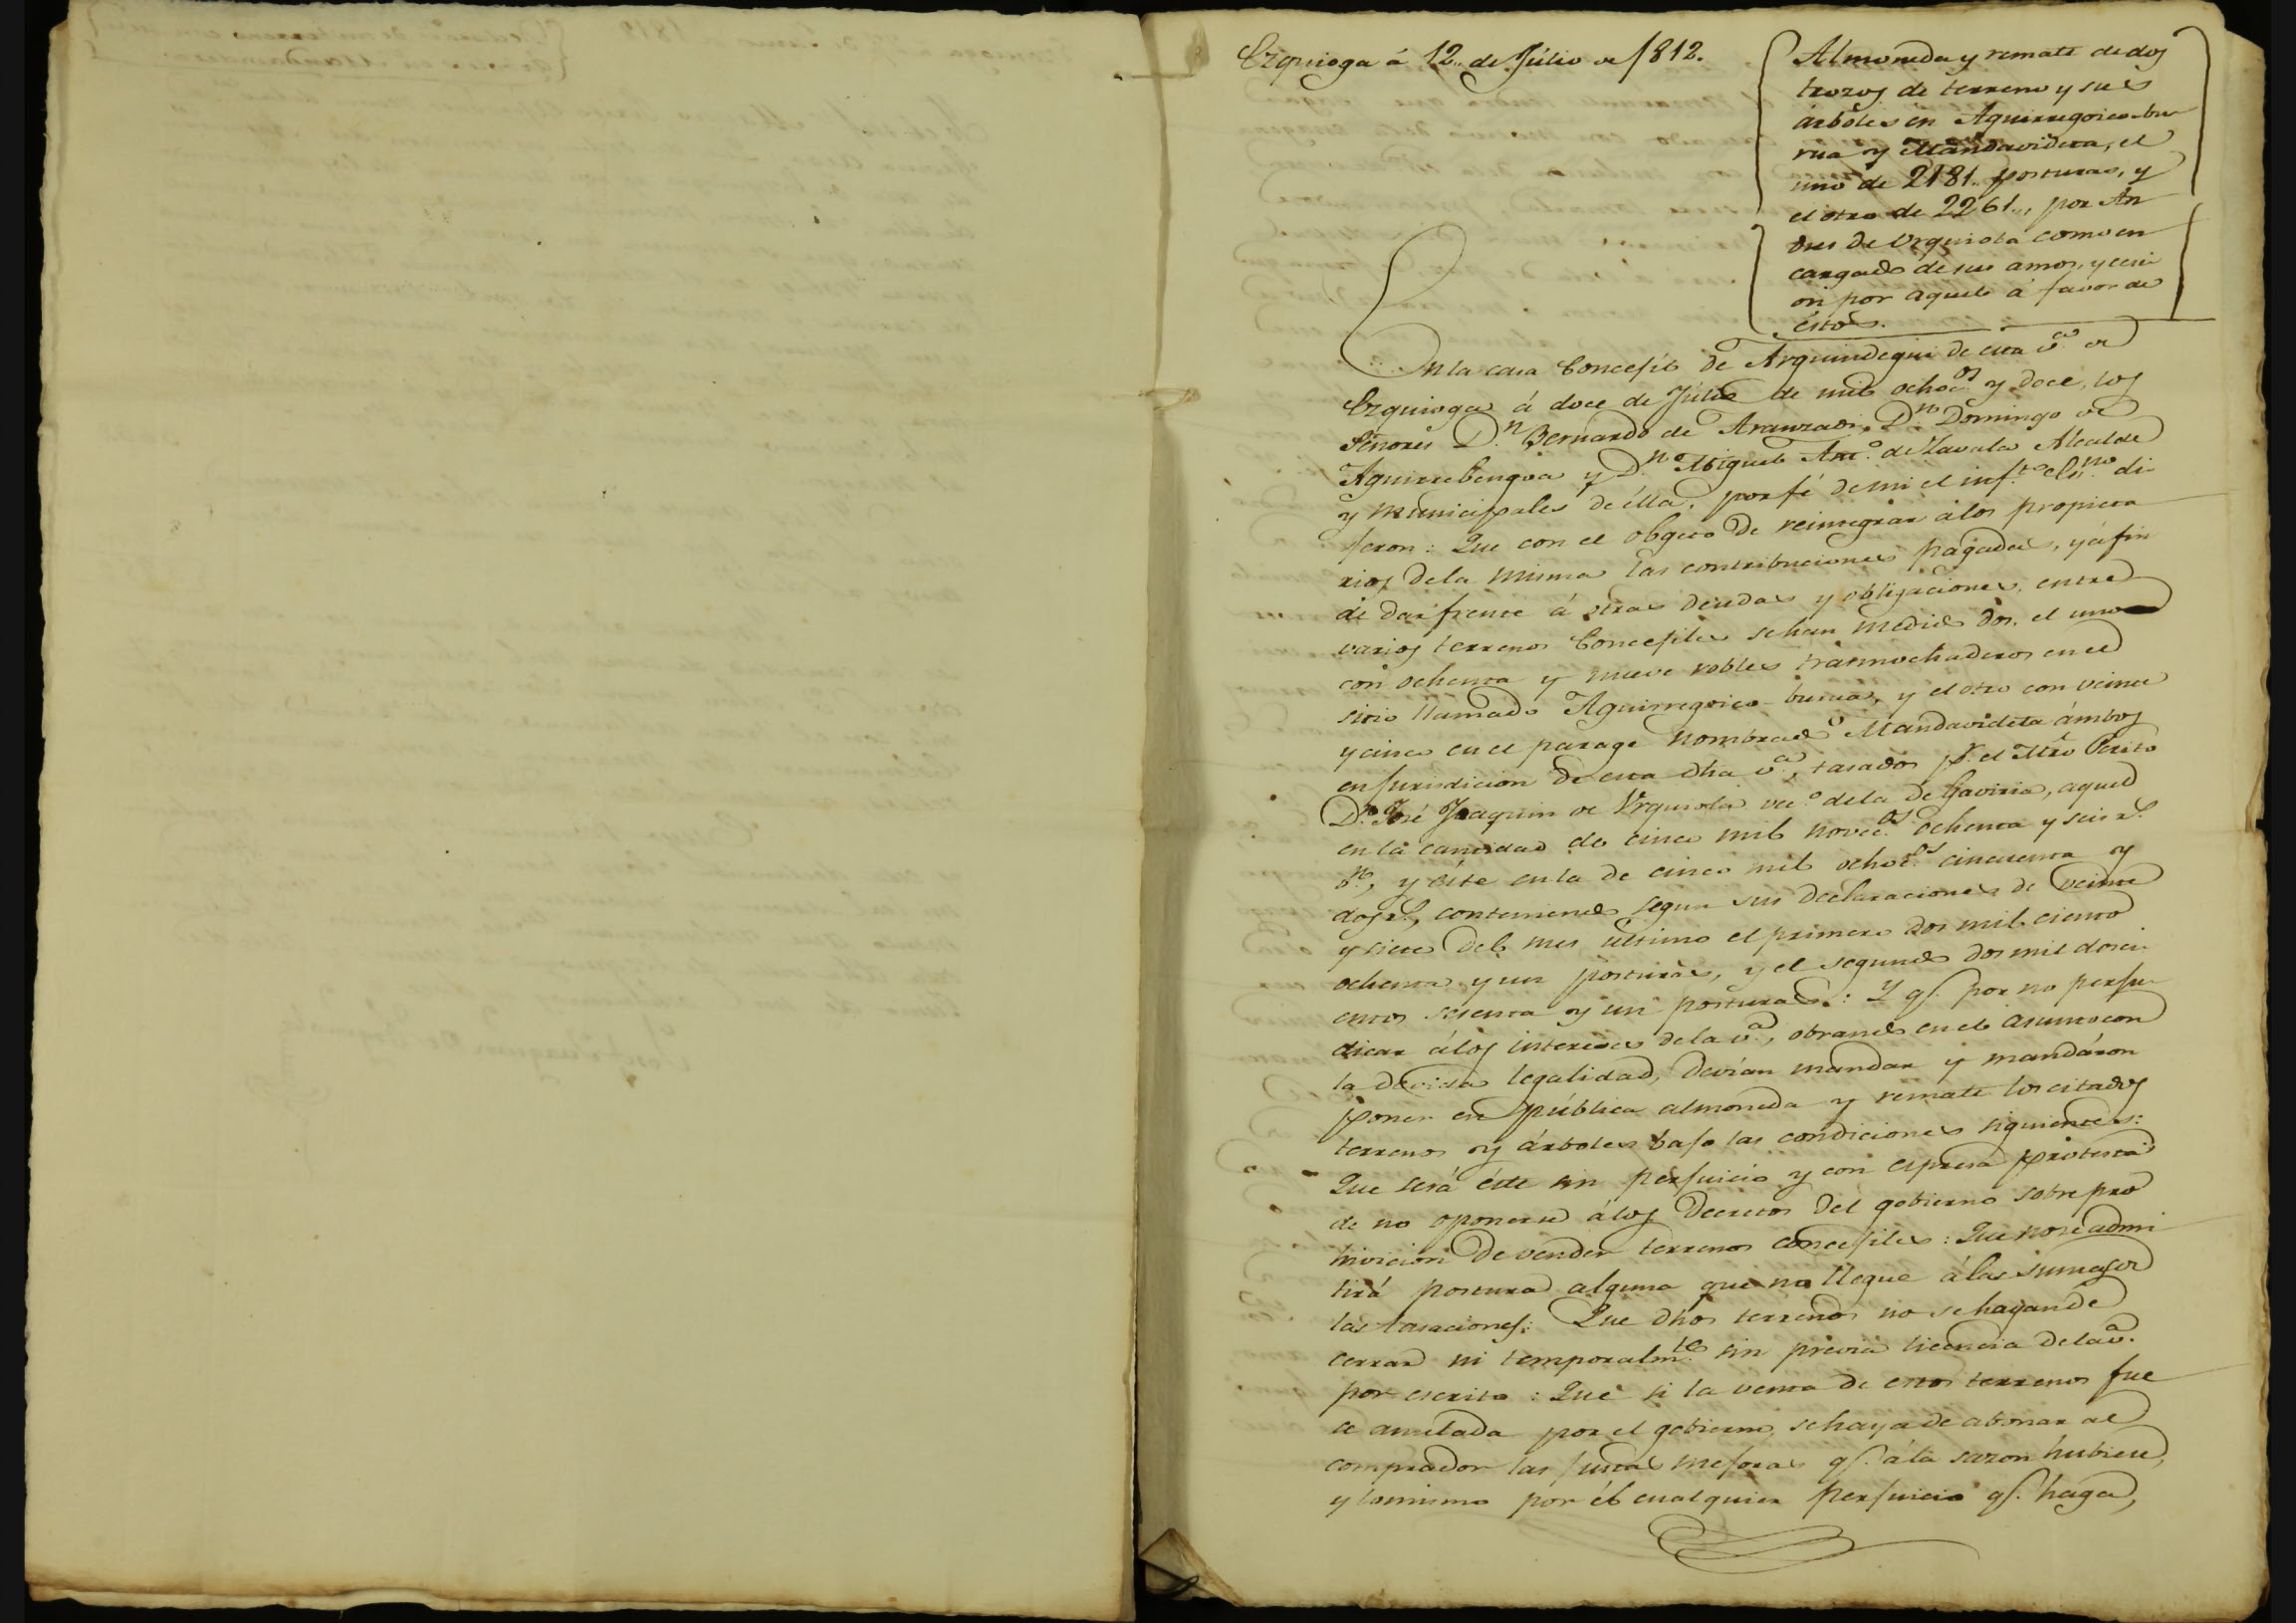 Ezquioga á 12,, de Júlio de 1812.
Almoneda y remate de dos
trozos de terreno y sus
árboles én Aguirregoico-bu-
rua y Mandavideta, el
uno de 2181,, posturas, y
el otro de 2261,, por An
dres de Urquiola como en
cargado de sus amos, y cesi
on por aquel á favor de
éstos.
En la casa Concejil de Arguindegui de esta v.ª de
Ezquioga á doce de Júlio de mil ochoc.os y doce, los
Señores D.n Bernardo de Aranzadi, D.n Domingo de
Aguirrebengoa y D.n Miguel Ant.º de Zavala Alcalde
y Municipales de élla, por fé de mi el inf.to Esn.no di-
jeron: Que con el obgeto de reintegrar á los propieta
rios de la misma las contribuciones pagadas, y á fin
de dar frente á otras deudas y obligaciones, entre
varios terrenos Concejiles se han medido dos, el uno
con ochenta y nueve robles trasmochaderos en el
sitio llamado Aguirregoico-burua, y el otro con veinte
y cinco en el parage nombrado Mandavideta ámbos
en jurisdicion de esta dha v.ª, tasados p.r el Mtro Perito
D.n José Joaquin de Urquiola vec.º de la de Gaviria, aquel
en la cantidad de cinco mil novec.os ochenta y seis r.s
v.n, y éste en la de cinco mil ochoc.os cincuenta y
dos r.s, conteniendo segun sus declaraciones de veinte
y siete del mes ultimo el primero dos mil ciento
ochenta y un posturas, y el segundo dos mil dosci-
entos sesenta y un posturas: Y q.e por no perju-
dicar á los intereses de la v.ª, obrando en el asunto con
la devida legalidad, devían mandar y mandáron
poner en pública almoneda y remate los citados
terrenos y árboles bajo las condiciones siguientes:
Que será éste sin perjuicio y con espresa protesta
de no oponerse á los Decretos del gobierno sobre pro
hivicion de vender terrenos concejiles: Que no se admi
tirá postura alguna que no llegue á las sumas de
las tasaciones: Que dhos terrenos no se hayan de
cerrar ni temporalm.te sin prévia licencia de la v.ª
por escrito: Que si la venta de estos terrenos fue
se anulada por el gobierno, se haya de abonar al
comprador las justas mejoras q.e á la sazon hubiese,
y lo mismo por él cualquier perjuicio q.e haga,